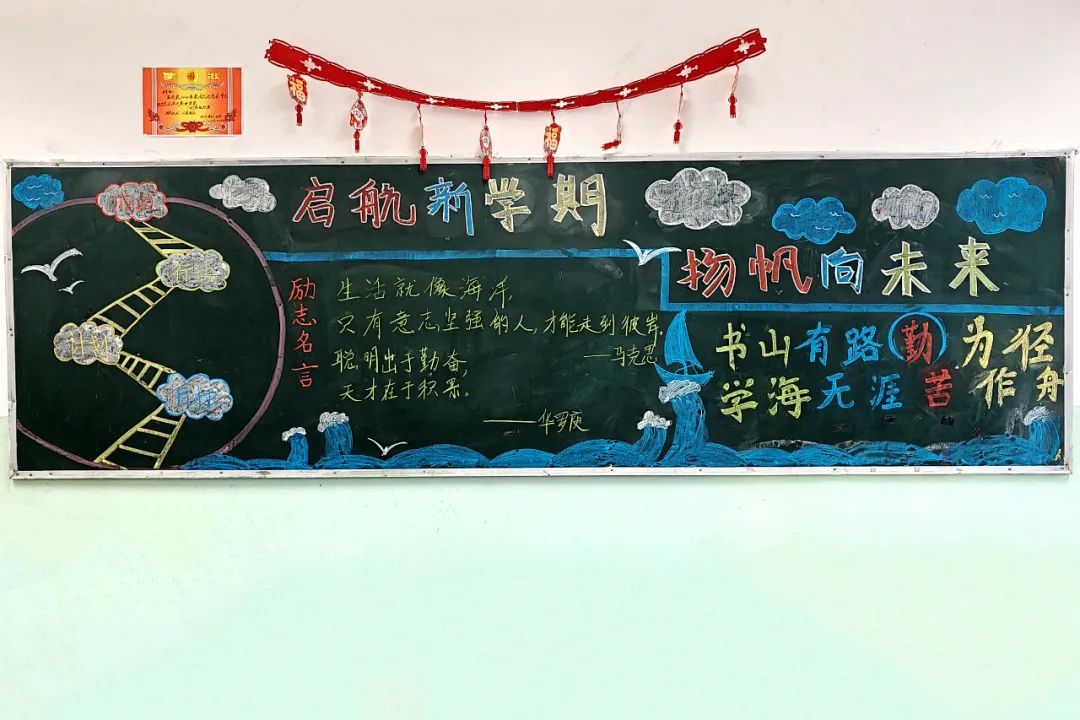 奖状
福
福
启航新学期
扬帆向未来
成功
行动
计划
目标
励志名言
生活就像海洋,
只有意志坚强的人,才能走到彼岸.
——马克思
聪明出于勤奋,
天才在于积累。
——华罗庚
书山有路勤为径
学海无涯苦作舟